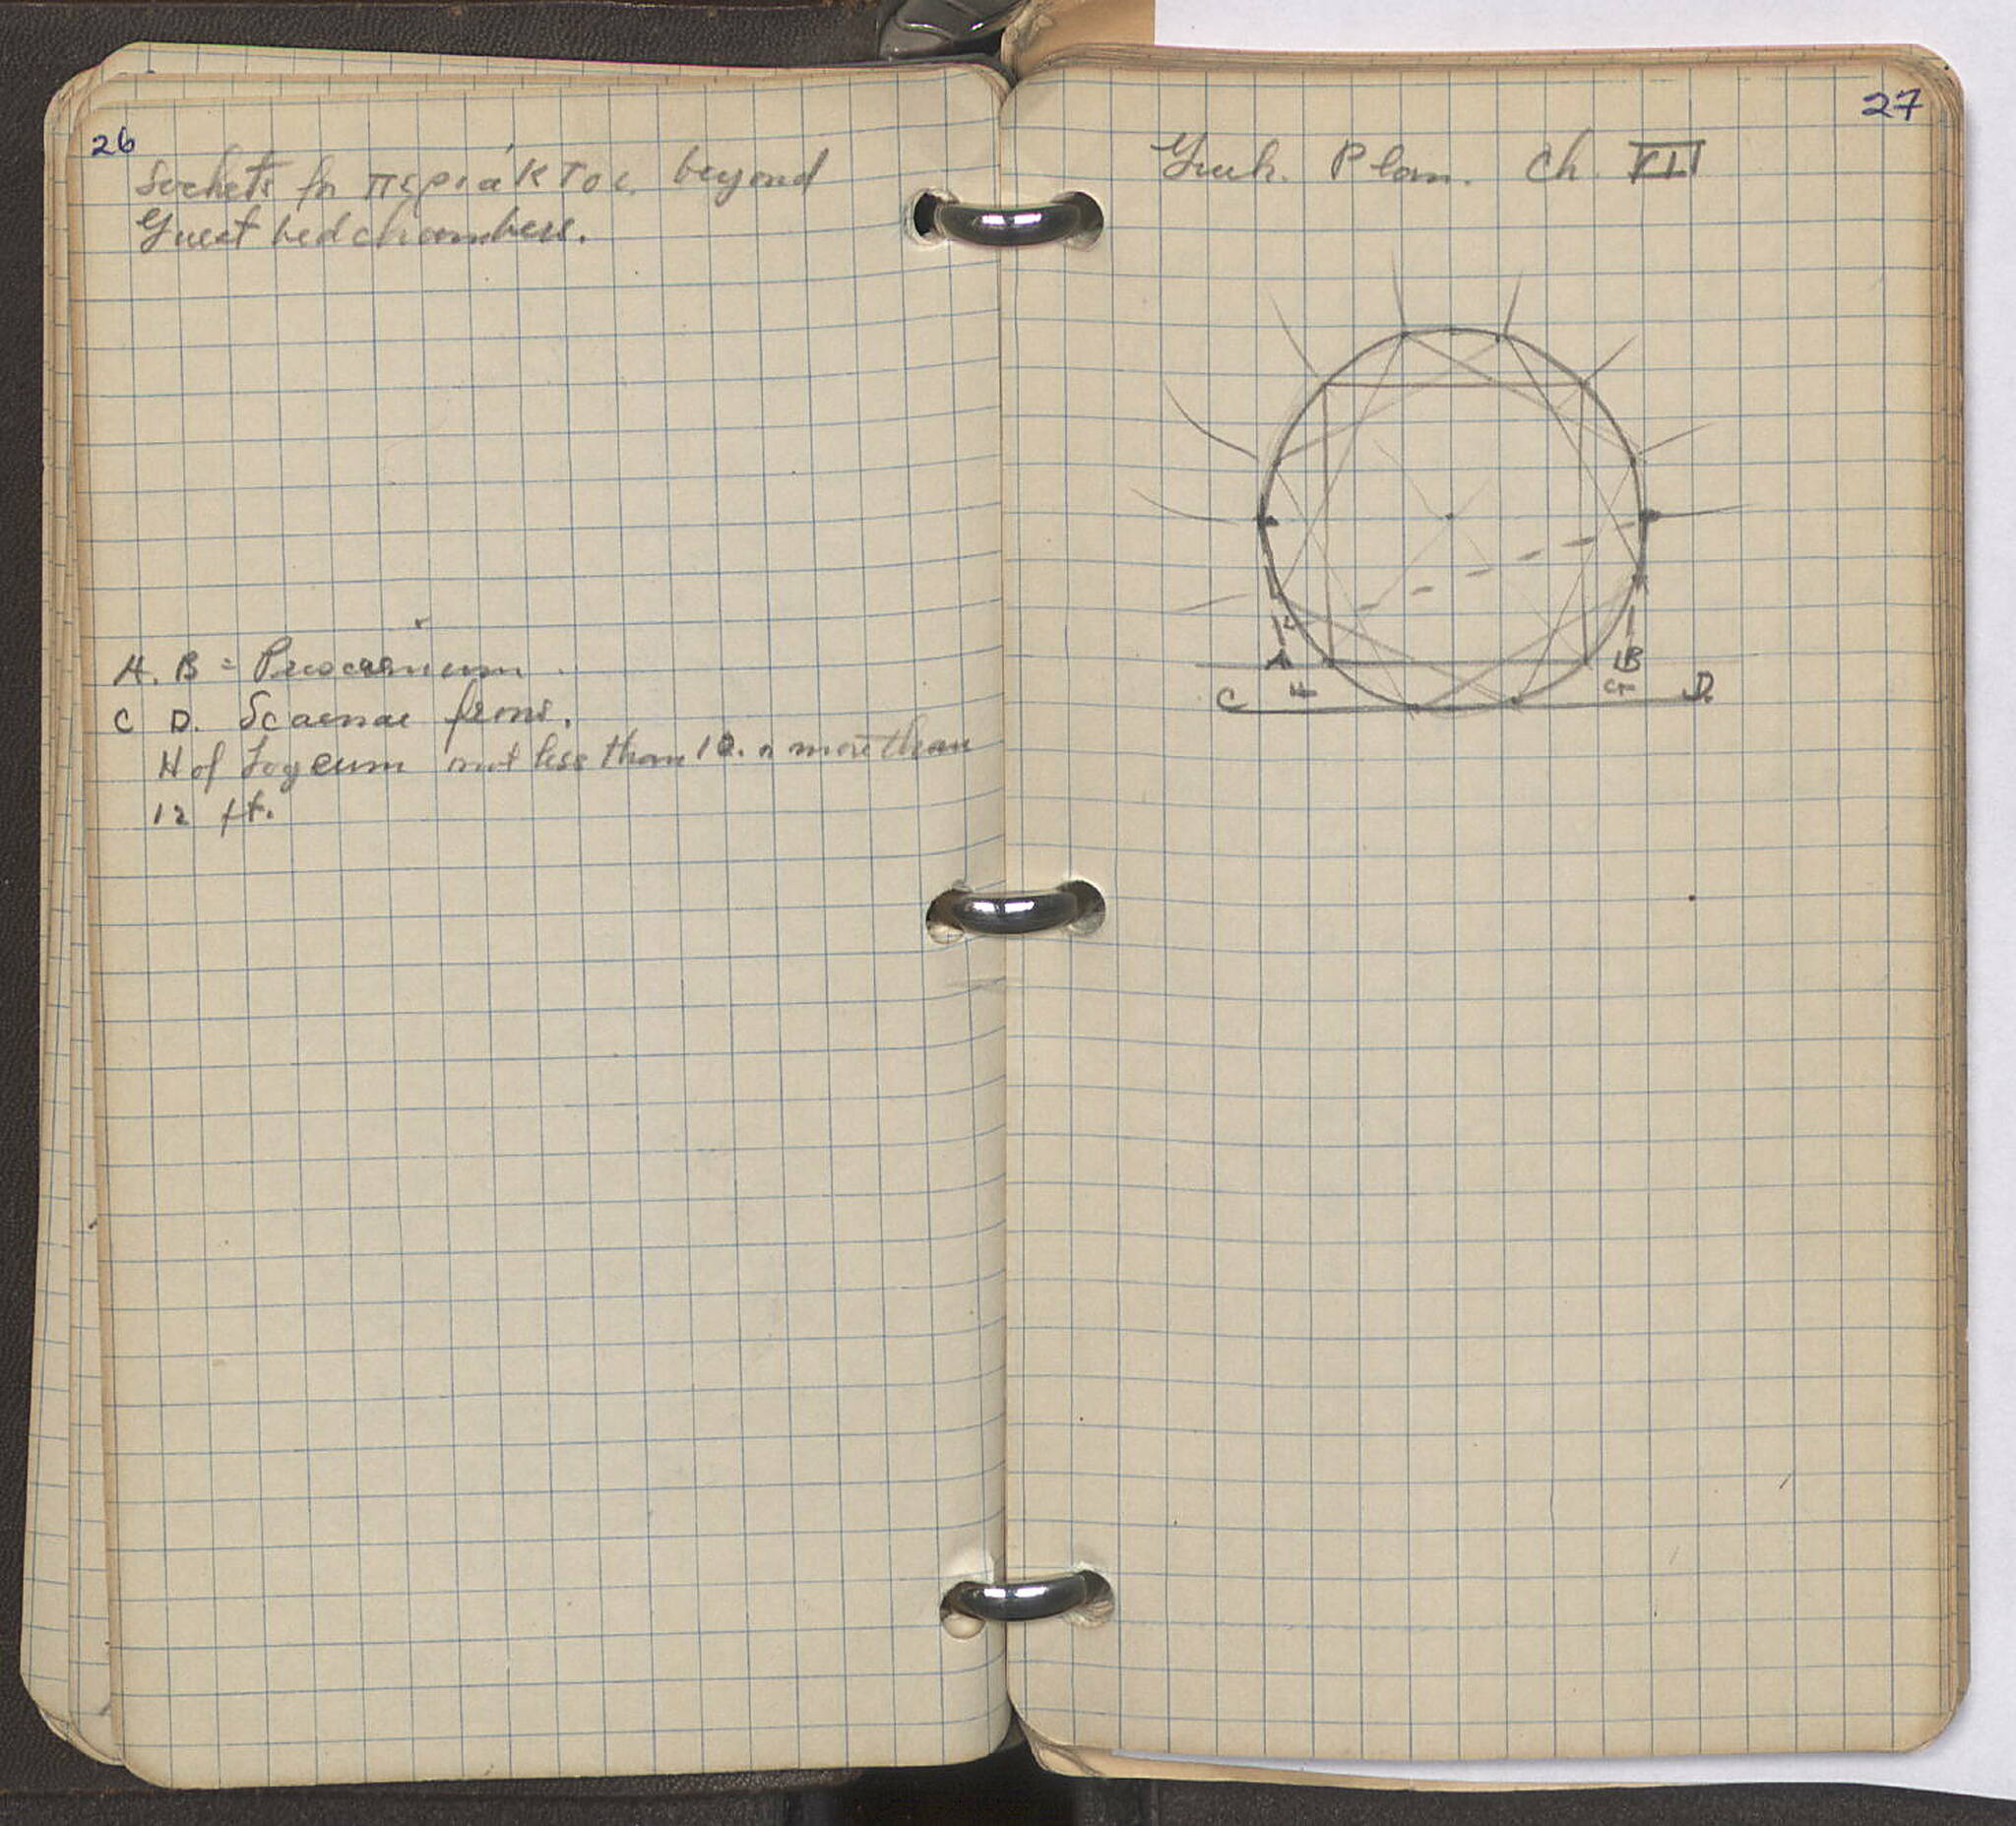 26
Sockets for περιάκτοι beyond
Guest bedchambers.
A. B = Proscenium
C D. Scaenae frons.
H of Logeum not less than 10. or more than
12 ft.
27
Greek. Plan. Ch. VII
A
B
H
G
C
D.